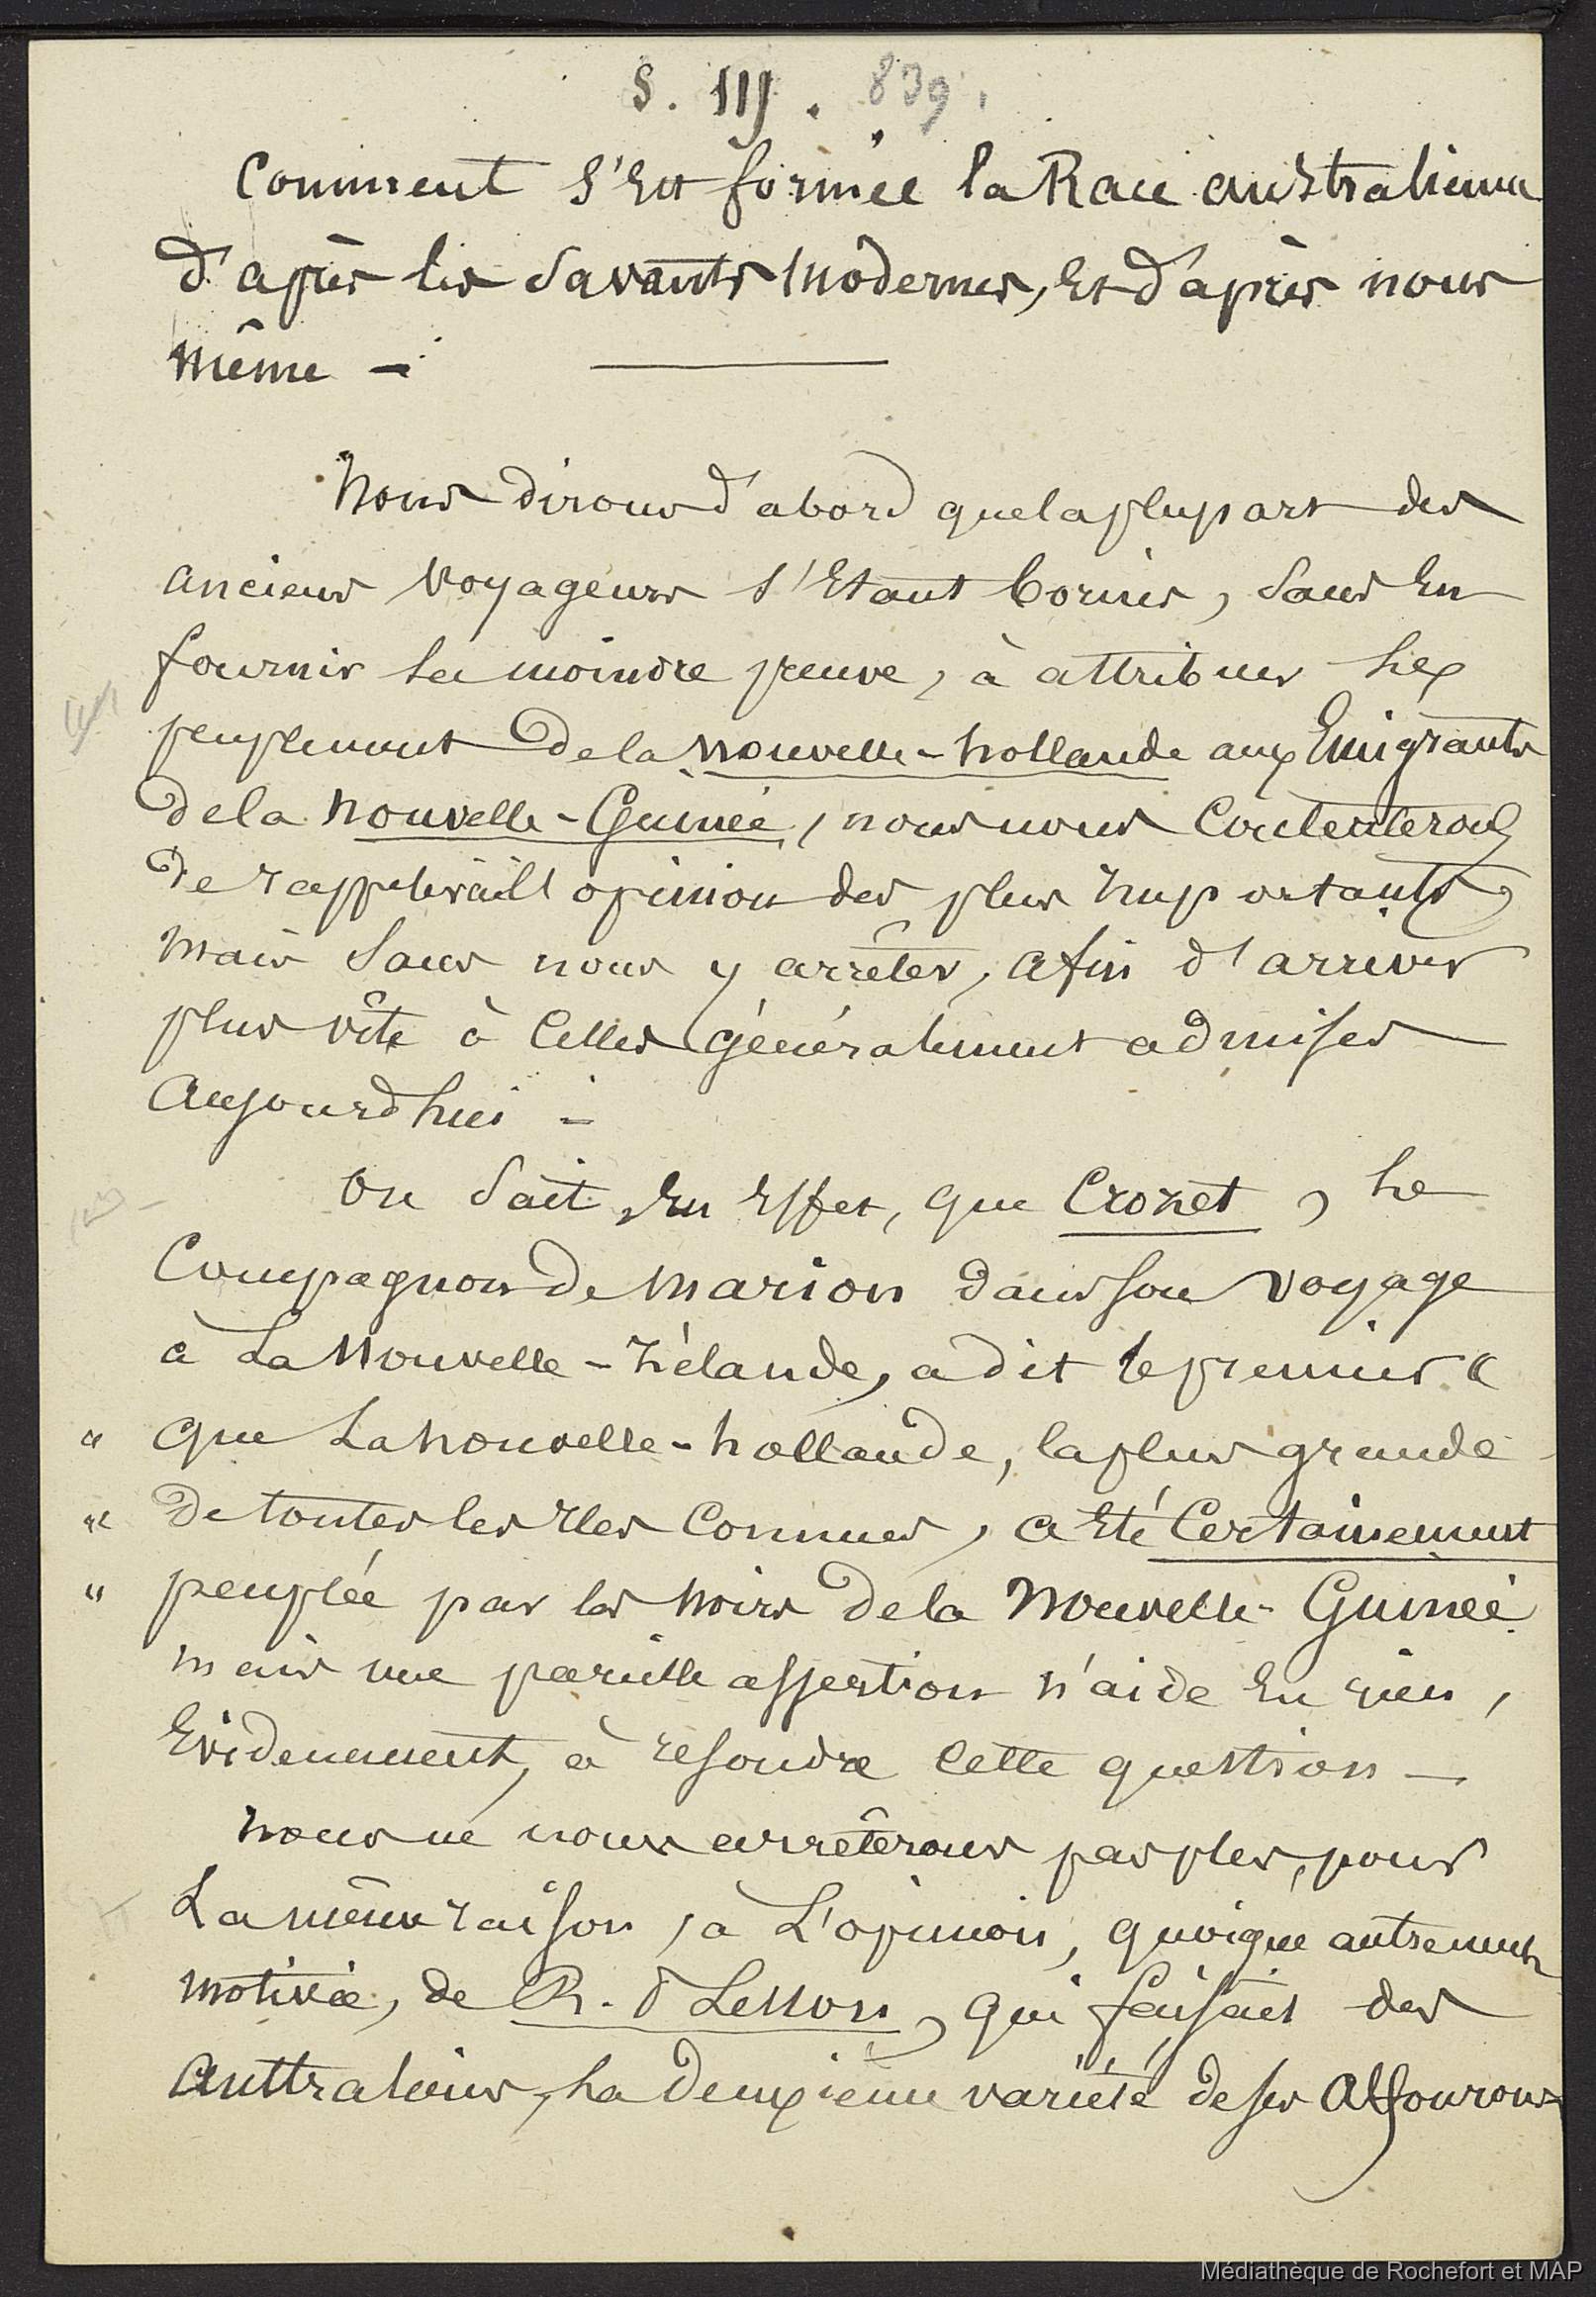 S. III. 839.
Comment s'est formée la Race australienne
d'après les savants modernes, et d'après nous
même -
Nous dirons d'abord que la plupart des
anciens voyageurs s'étant bornés, sans en
fournir la moindre preuve, à attribuer le
peuplement de la Nouvelle-hollande aux Emigrants
de la Nouvelle-Guinée, nous nous contenterons
de rappeler l'opinion des plus importants,
mais sans nous y arrêter, afin d'arriver
plus vîte à celles généralement admises
Aujourd'hui -
On sait, en effet, que Crozet, le
Compagnon de Marion dans son voyage
à La Nouvelle-Zélande, a dit le premier "
" que La Nouvelle-hollande, la plus grande
" de toutes les Iles connues, a été certainement
" peuplée par les noirs de la Nouvelle-Guinée
mais une pareille assertion n'aide en rien,
Evidemment, à resoudre cette question —
Nous ne nous arrêterons pas plus, pour
La même raison, à L'opinion, quoique autrement
motivée, de R. P Lesson, qui faisait des
Australiens, la deuxième variété de ses Alfourous
Médiathèque de Rochefort et MAP